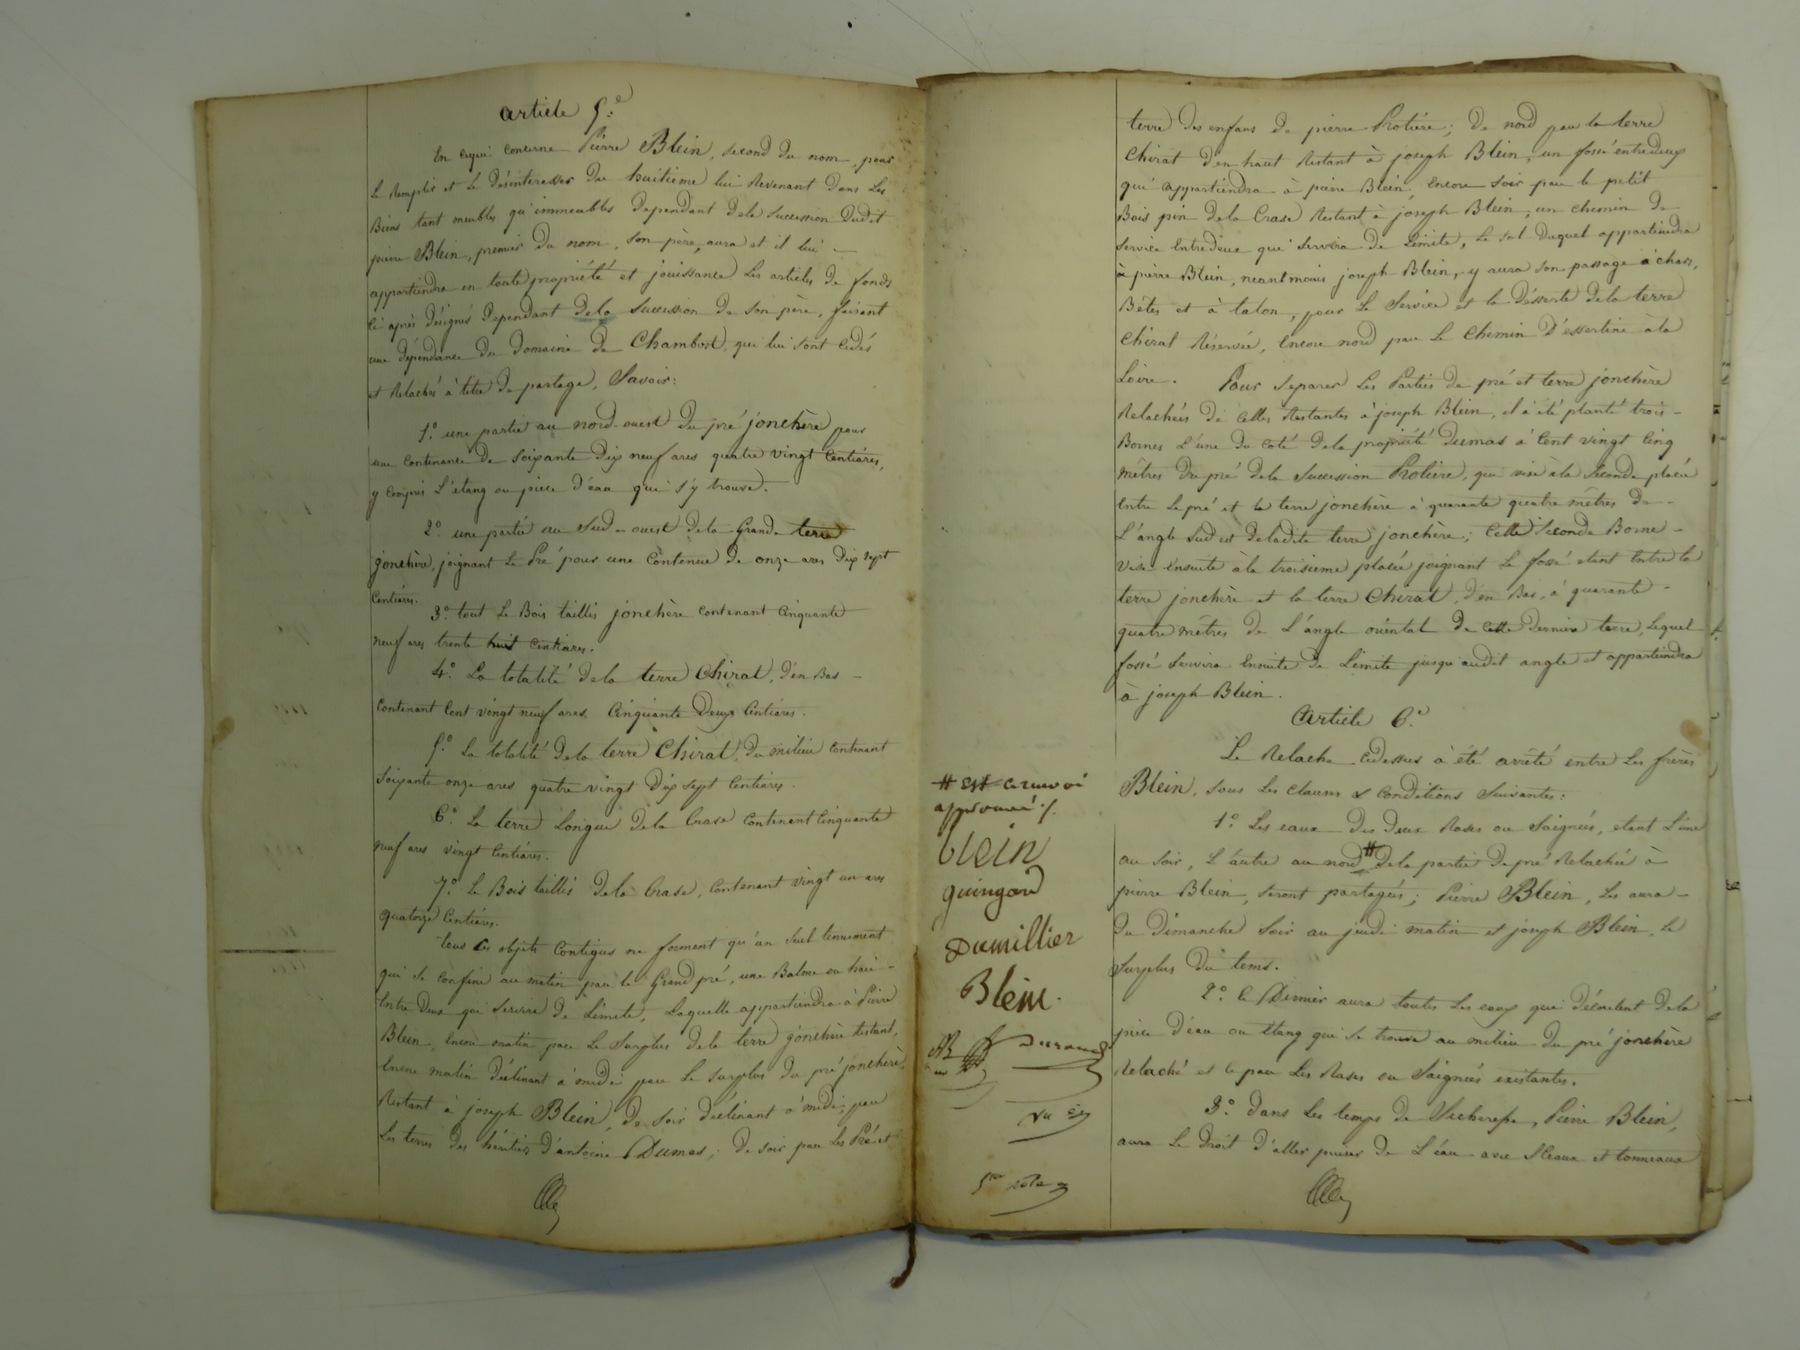 article 5.e
En cequi concerne Pierre Blein, second du nom, pour
le Remplir et le désinteresser du huitieme lui Revenant dans Les
Biens tant meubles qu'immeubles dependant dela Succession Dudit
pierre Blein, premier du nom, son père, aura et il lui
appartiendra en toute propriété et jouissance Les articles de fonds
ci après désignés Dependant dela Succession de son père, faisant
une dépendance du Domaine de Chambost, qui lui sont cédés
et Relachés à titre de partage, Savoir:
1.o une partie au nord-ouest du pré jonchère pour
une Contenance de Soixante Dix neuf ares quatre vingt Centiares,
y Compris L'étang ou piece d'eau qui s'y trouve.
2.o une partie au Sud-ouest dela Grande terre
jonchère, joignant Le Pré pour une Contenue de onze ares Dix sept
Centiares.
3.o tout Le Bois taillis jonchère contenant Cinquante
neuf ares trente huit Centiares.
4.o La totalité dela terre Chirat, d'en Bas
Contenant Cent vingt neuf ares Cinquante Deux Centiares.
5.o La totalité dela terre Chirat, du milieu contenant
Soixante onze ares quatre vingt Dix sept Centiares.
6.o La terre Longue dela Crase Contenant Cinquante
neuf ares vingt Centiares.
7.o Le Bois taillis dela Crase, Contenant vingt un ares
quatorze Centiares.
tous Ces objets Contigus ne forment qu'un Seul tennement
qui se Confine au matin par le Grand pré, une Balme ou haie
Entre Deux qui Servira de Limite, Laquelle appartiendra à Pierre
Blein, Encore matin par Le Surplus dela terre jonchère Restant,
Encore matin déclinant à midi par Le Surplus du pré jonchère,
Restant à joseph Blein, de Soir déclinant à midi, par
Les terres des héritiers d'antoine Dumas; de soir par Les Pré et
terre des enfans de pierre Protière; De nord par la terre
Chirat d'en haut Restant à joseph Blein, un fossé entredeux
qui appartiendra à pierre Blein. Encore Soir par le petit
Bois pin dela Crase Restant à joseph Blein, un chemin de
Service Entredeux qui Servira de Limite, Le sol Duquel appartiendra
à pierre Blein, neantmoins joseph Blein, y aura son passage à chars,
Bêtes et à talon, pour Le Service et la Desserte dela terre
Chirat Réservée, Encore nord par Le Chemin d'essertine àla
Loire. Pour Separer Les Parties de pré et terre jonchère
Relachées de Celles Restantes à joseph Blein, il à été planté trois
Bornes L'une du Coté dela propriété Dumas à Cent vingt Cinq
mètres Du pré dela Succession Protière, qui vise àla Seconde placée
Entre Le pré et la terre jonchère à quarante quatre mètres de
L'angle Sud est deladite terre jonchère; Cette Seconde Borne
vise Ensuite àla troisieme placée joignant Le fossé étant Entre la
terre jonchère et la terre Chirat, d'en Bas, à quarante
quatre mètres de L'angle oriental de Cette Dernière terre, Lequel
fossé Servira Ensuite de Limite jusqu'audit angle et appartiendra
à joseph Blein.
Article 6.e
Le Relache Cidessus à été arrêté entre Les frères
Blein, sous Les Clauses & Conditions Suivantes:
1.o Les eaux des deux Rases ou Saignées, etant L'une
au Soir, L'autre au nord # Dela partie De pré Relachée à
pierre Blein, seront partagées; Pierre Blein, Les aura
Du Dimanche Soir au jeudi matin et joseph Blein le
Surplus du tems.
2.o le Dernier aura toutes Les eaux qui découlent dela
piece d'eau ou étang qui se trouve au milieu du pré jonchère
Relaché et ce par Les Rases ou Saignées existantes.
3.o Dans Les temps de Secheresse, Pierre Blein,
aura Le Droit d'aller puiser de L'eau avec Seaux et tonneaux
# Est # ce renvoi
approuvé /.
blein
guingard
Dumillier
Blein.
Durand
5me rôle